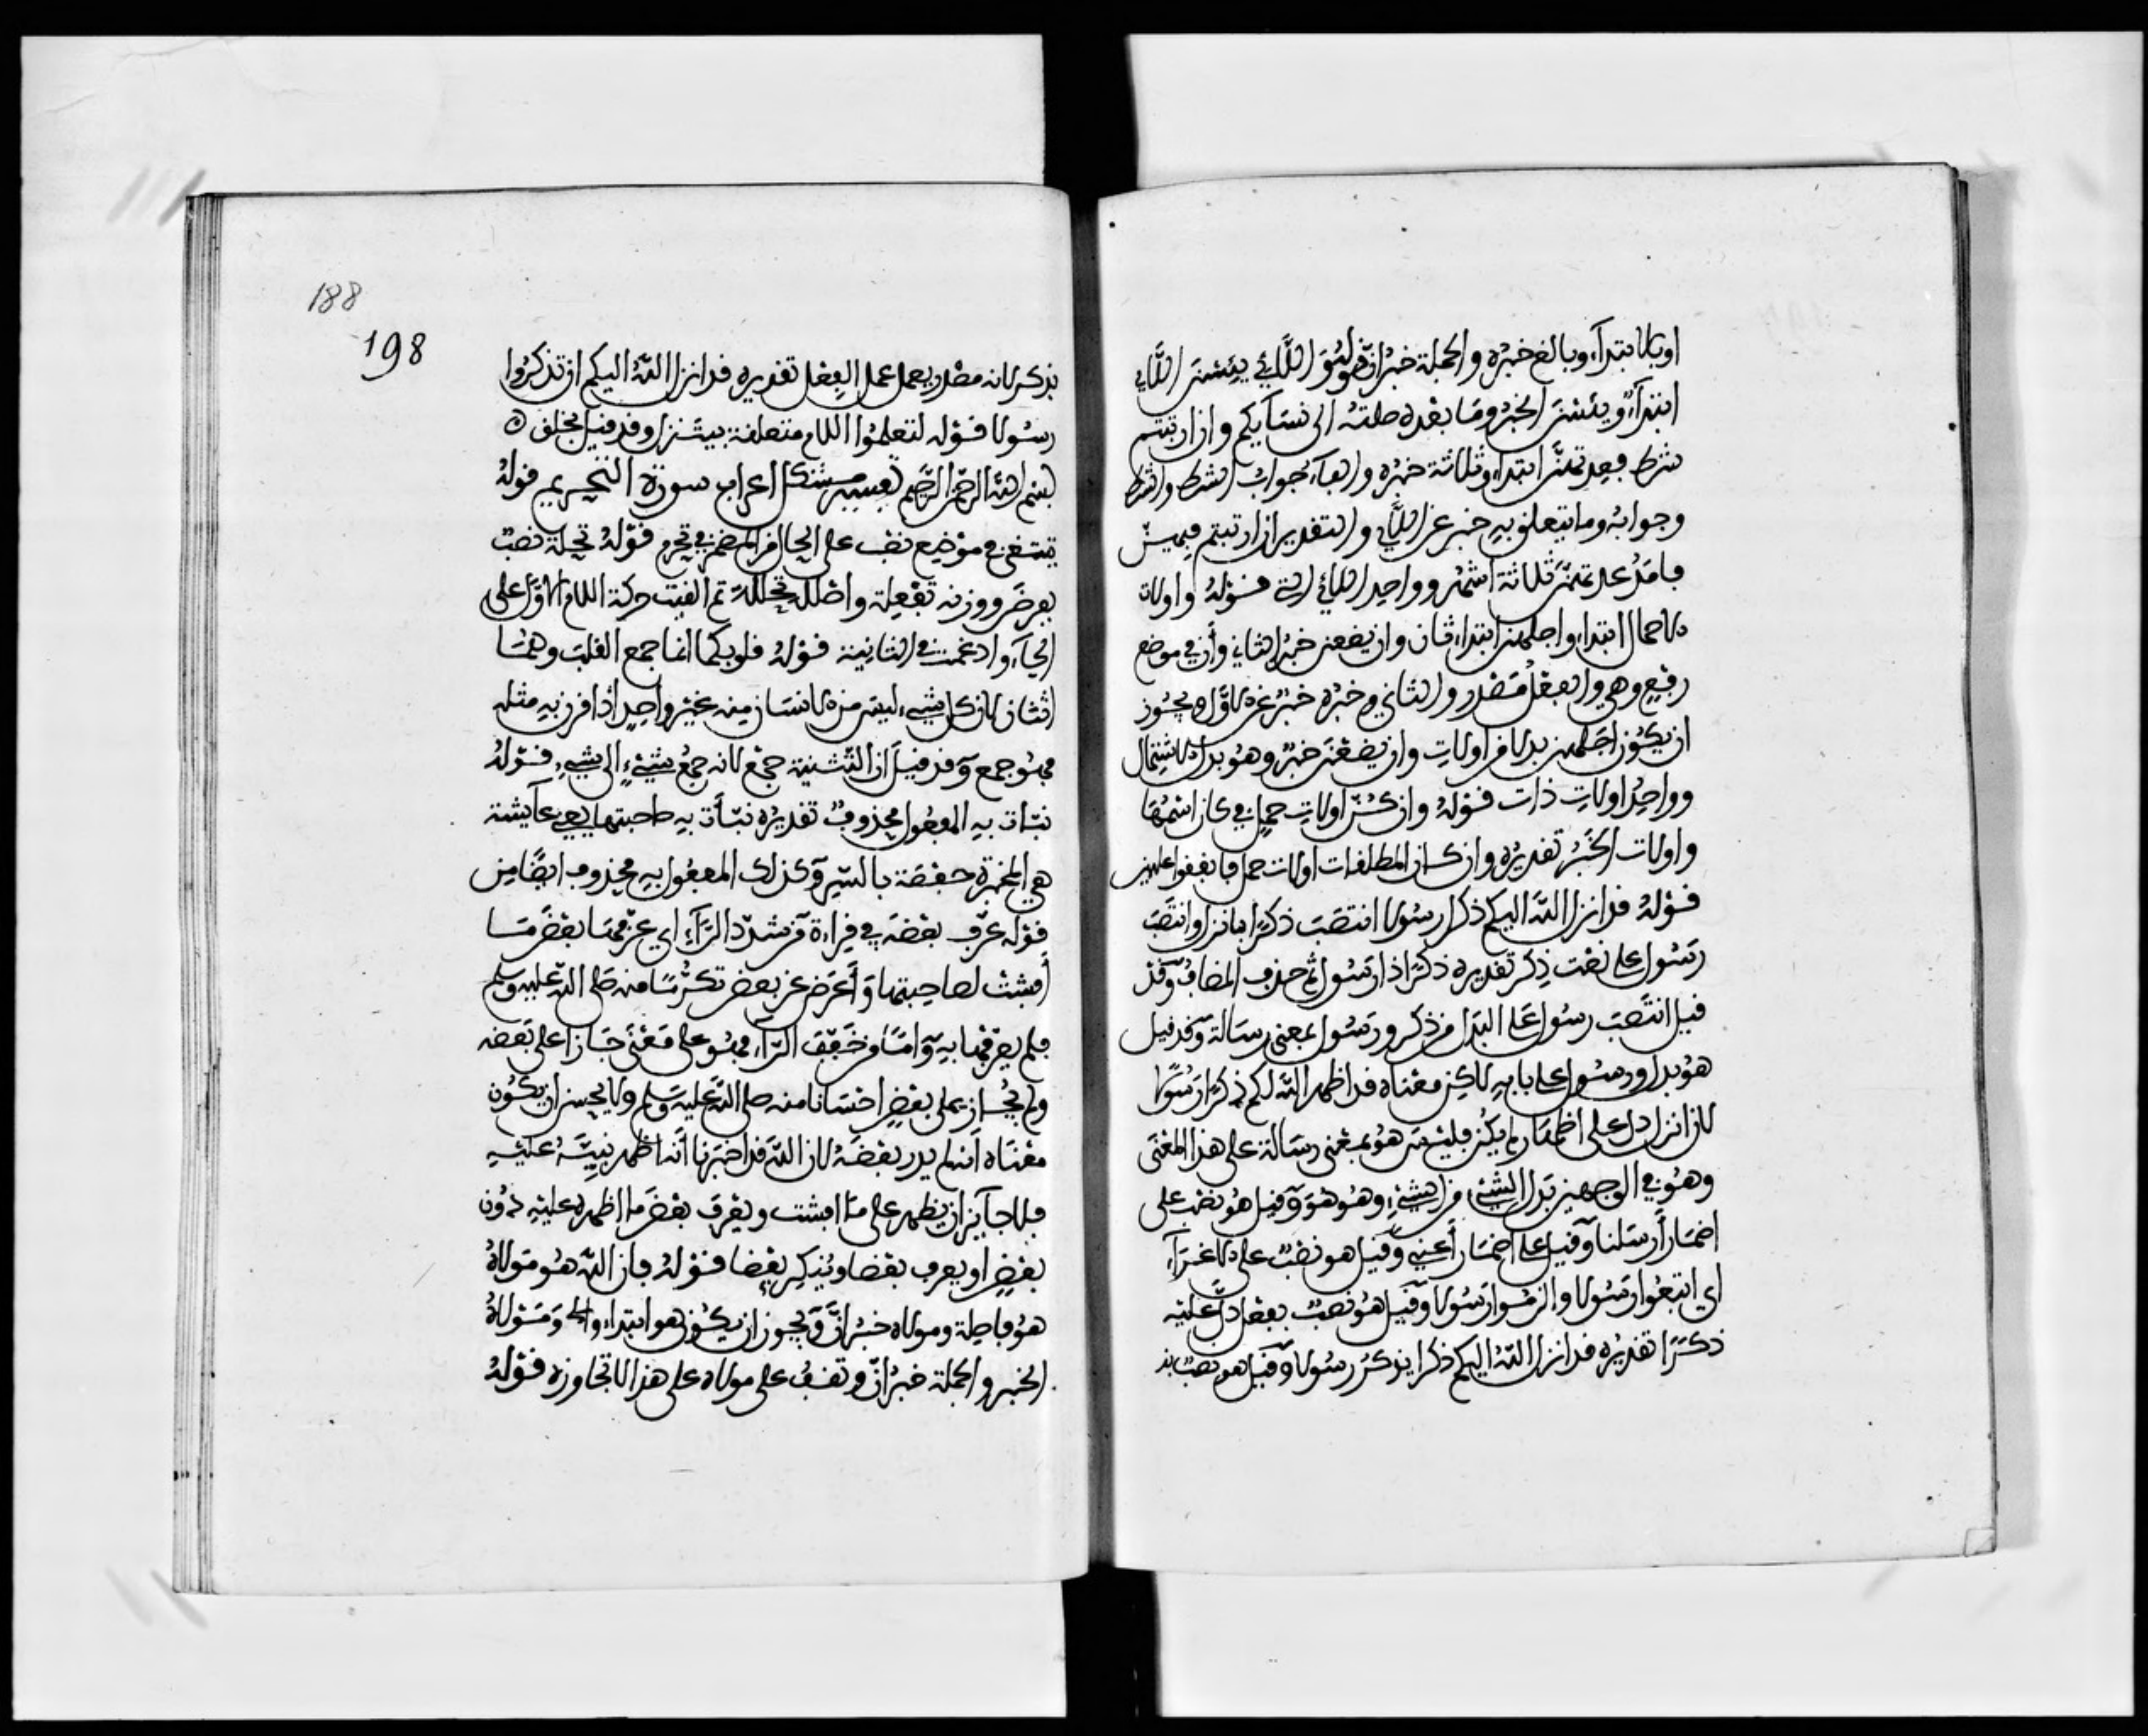 او بالابتدآء وبالغ خبره والجملة خبر ان قوله واللَّآئي يئسن اللَّآئي
ابتدآء ويئسن الخبر وما بعده صلته الى نسآيكم وان ارتبتم
شرط فعدتهنّ ابتداء وثلاثة خبره والفآء جواب الشرط والشرط
وجوابه وما يتعلق به خبر عن اللَّآئي والتقدير ان ارتبتم فيهنّ
فامد عدتهنّ ثلاثة اشهر وواحد اللآئي التي قوله واولات
الاحمال ابتداء واجلهن ابتداء ثان وان يضعن خبر الثاني وأن في موضع
رفع وهي والفعل مصدر والثاني وخبره خبر عن الاوّل ويجوز
ان يكون اجلهن بدلا من اولات وان يضعن خبر وهو بدل الاشتمال
وواحد اولات ذات قوله وان كنّ اولات حمل في كان اسمها
واولات الخبر تقديره وان كان المطلقات اولات حمل فانفقوا عليهن
قوله قد انزل اللّه اليكم ذكرا رسولا انتصب ذكرًا بانزل وانتصب
رسول على نعت ذكر تقديره ذكرًا ذا رسول ثم حذف المضاف وقد
قيل انتصب رسول على البدل من ذكر ورسول بمعنى رسالة وقد قيل
هو بدل ورسول على بابه لاكن معناه قد اظهر اللّه لكم ذكرًا رسولا
لان انزل دل على اظهار ما يكن فليس هو بمعنى رسالة على هذا المعنى
وهو في الوجهين بدل الشيء من الشيء وهو هو وقيل هو نصب على
اضمار أرسلنا وقيل على اضمار أعني وقيل هو نصب على الاغرآء
اي اتبعوا رسولا والزموا رسولا وقيل هو نصب بفعل دلّ عليه
ذكرًا تقديره قد انزل اللّه اليكم ذكرا يذكر رسولا وقيل هو نصب بذ
188
198
بذكر لانه مصدر يعمل عمل الفعل تقديره قد انزل اللّه اليكم ان تذكروا
رسولا قوله لتعلموا اللام متعلقة بيتنزل وقد قيل بخلق
بسم الله الرحمن الرحيم تفسير مشكل اعراب سورة التحريم قوله
تبتغي في موضع نصب على الحال من المضمر في تحرم قوله تحلة نصب
بفرض ووزنه تفعلة واصله تحللة ثم القيت حركة اللام الاوّل على
الحآء وادغمت في الثانية قوله قلوبكما انما جمع القلب وهما
اثنان لان كل شيء ليس من الانسان منه غير واحد اذا قرن به مثله
فهو جمع وقد قيل ان التثنية جمع لانه جمع شيء الى شيء قوله
نبّات به المفعول محذوف تقديره نبّأت به صاحبتها يعني عآيشة
هي المخبرة حفصة بالسّر وكذلك المفعول به محذوف ايضًا من
قوله عرّف بعضه في قراءة من شدّد الرّآء اي عرّفها بعض ما
أفشت لصاحبتها وأعرض عن بعض تكرّمًا منه صلى اللّه عليه وسلم
فلم يعرّفها به وامّا من خفف الرّآء فهو على معنى جازا على بعضه
ولم يجاز على بعض احسانا منه صلى اللّه عليه وسلم ولا يحسن ان يكون
معناه أنه لم يدر بعضه لان اللّه قد اخبرنا أنه اظهر نبيّه عليه
فلا جآيز ان يظهر على ما افشت ويعرف بعض ما اظهره عليه دون
بعض او يعرف بعضا وينكر بعضا قوله فان اللّه هو مولاه
هو فاصلة ومولاه خبر انّ ويجوز ان يكون هو ابتداء ومولاه
الخبر والجملة خبر انّ وتقف على مولاه على هذا لا تجاوزه قوله